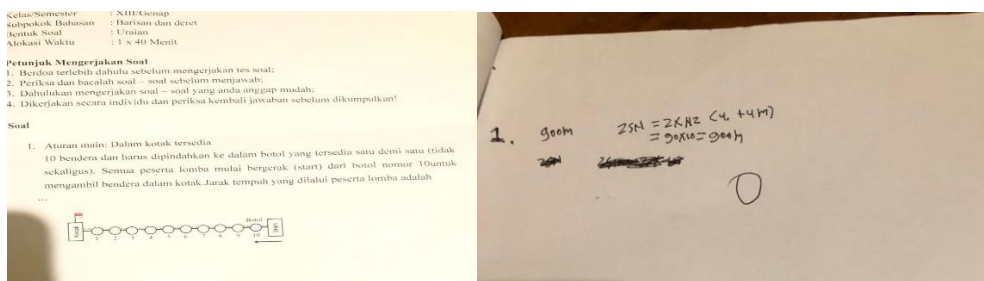 Kelas/Semester : XIII/Genap
Subpokok Bahasan : Barisan dan deret
Bentuk Soal : Uraian
Alokasi Waktu : 1 x 40 Menit
Petunjuk Mengerjakan Soal
1. Berdoa terlebih dahulu sebelum mengerjakan tes soal;
2. Periksa dan bacalah soal – soal sebelum menjawab;
3. Dahulukan mengerjakan soal – soal yang anda anggap mudah;
4. Dikerjakan secara individu dan periksa kembali jawaban sebelum dikumpulkan!
Soal
1. Aturan main: Dalam kotak tersedia
10 bendera dan harus dipindahkan ke dalam botol yang tersedia satu demi satu (tidak
sekaligus). Semua peserta lomba mulai bergerak (start) dari botol nomor 10untuk
mengambil bendera dalam kotak.Jarak tempuh yang dilalui peserta lomba adalah
...
Botol
Kotak
1 2 3 4 5 6 7 8 9 10
1. 900m
= 90x10 = 900m